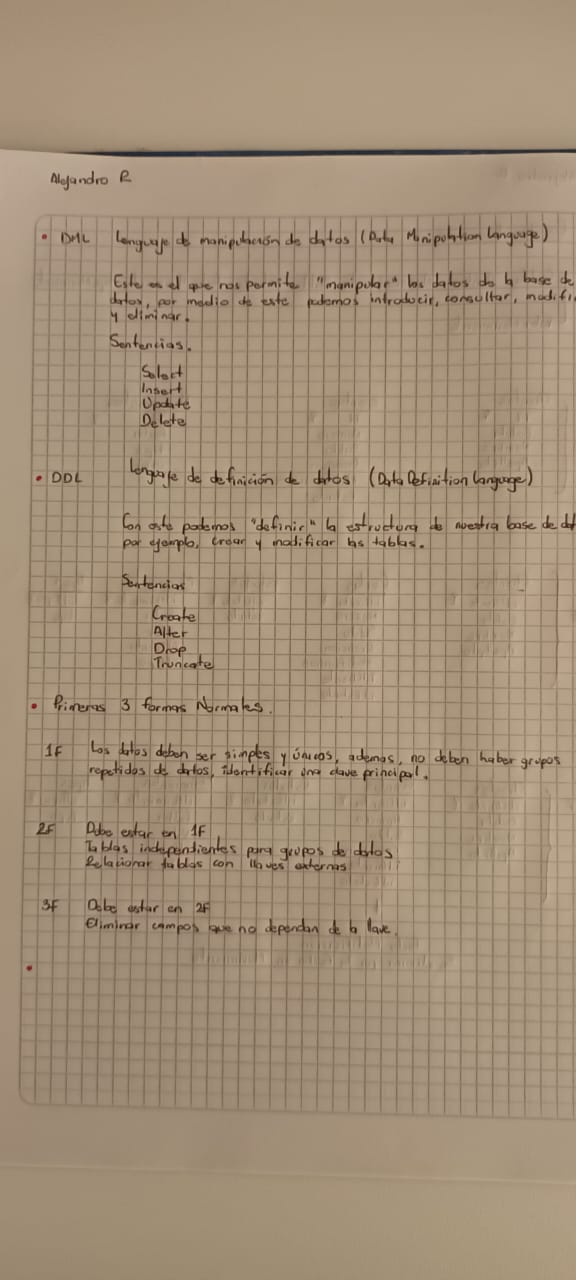 Alejandro R
• DML Lenguaje de manipulación de datos (Data Manipulation Language)
Este es el que nos permite "manipular" los datos de la base de
datos, por medio de este podemos introducir, consultar, modifi
y eliminar.
Sentencias.
Select
Insert
Update
Delete
• DDL Lenguaje de definición de datos (Data Definition Language)
Con este podemos "definir" la estructura de nuestra base de dat
por ejemplo, crear y modificar las tablas.
Sentencias
Create
Alter
Drop
Truncate
• Primeras 3 formas Normales.
1F Los datos deben ser simples y únicos, ademas, no deben haber grupos
repetidos de datos, identificar una clave principal.
2F Debe estar en 1F
Tablas independientes para grupos de datos
Relacionar tablas con llaves externas
3F Debe estar en 2F
Eliminar campos que no dependan de la llave.
•